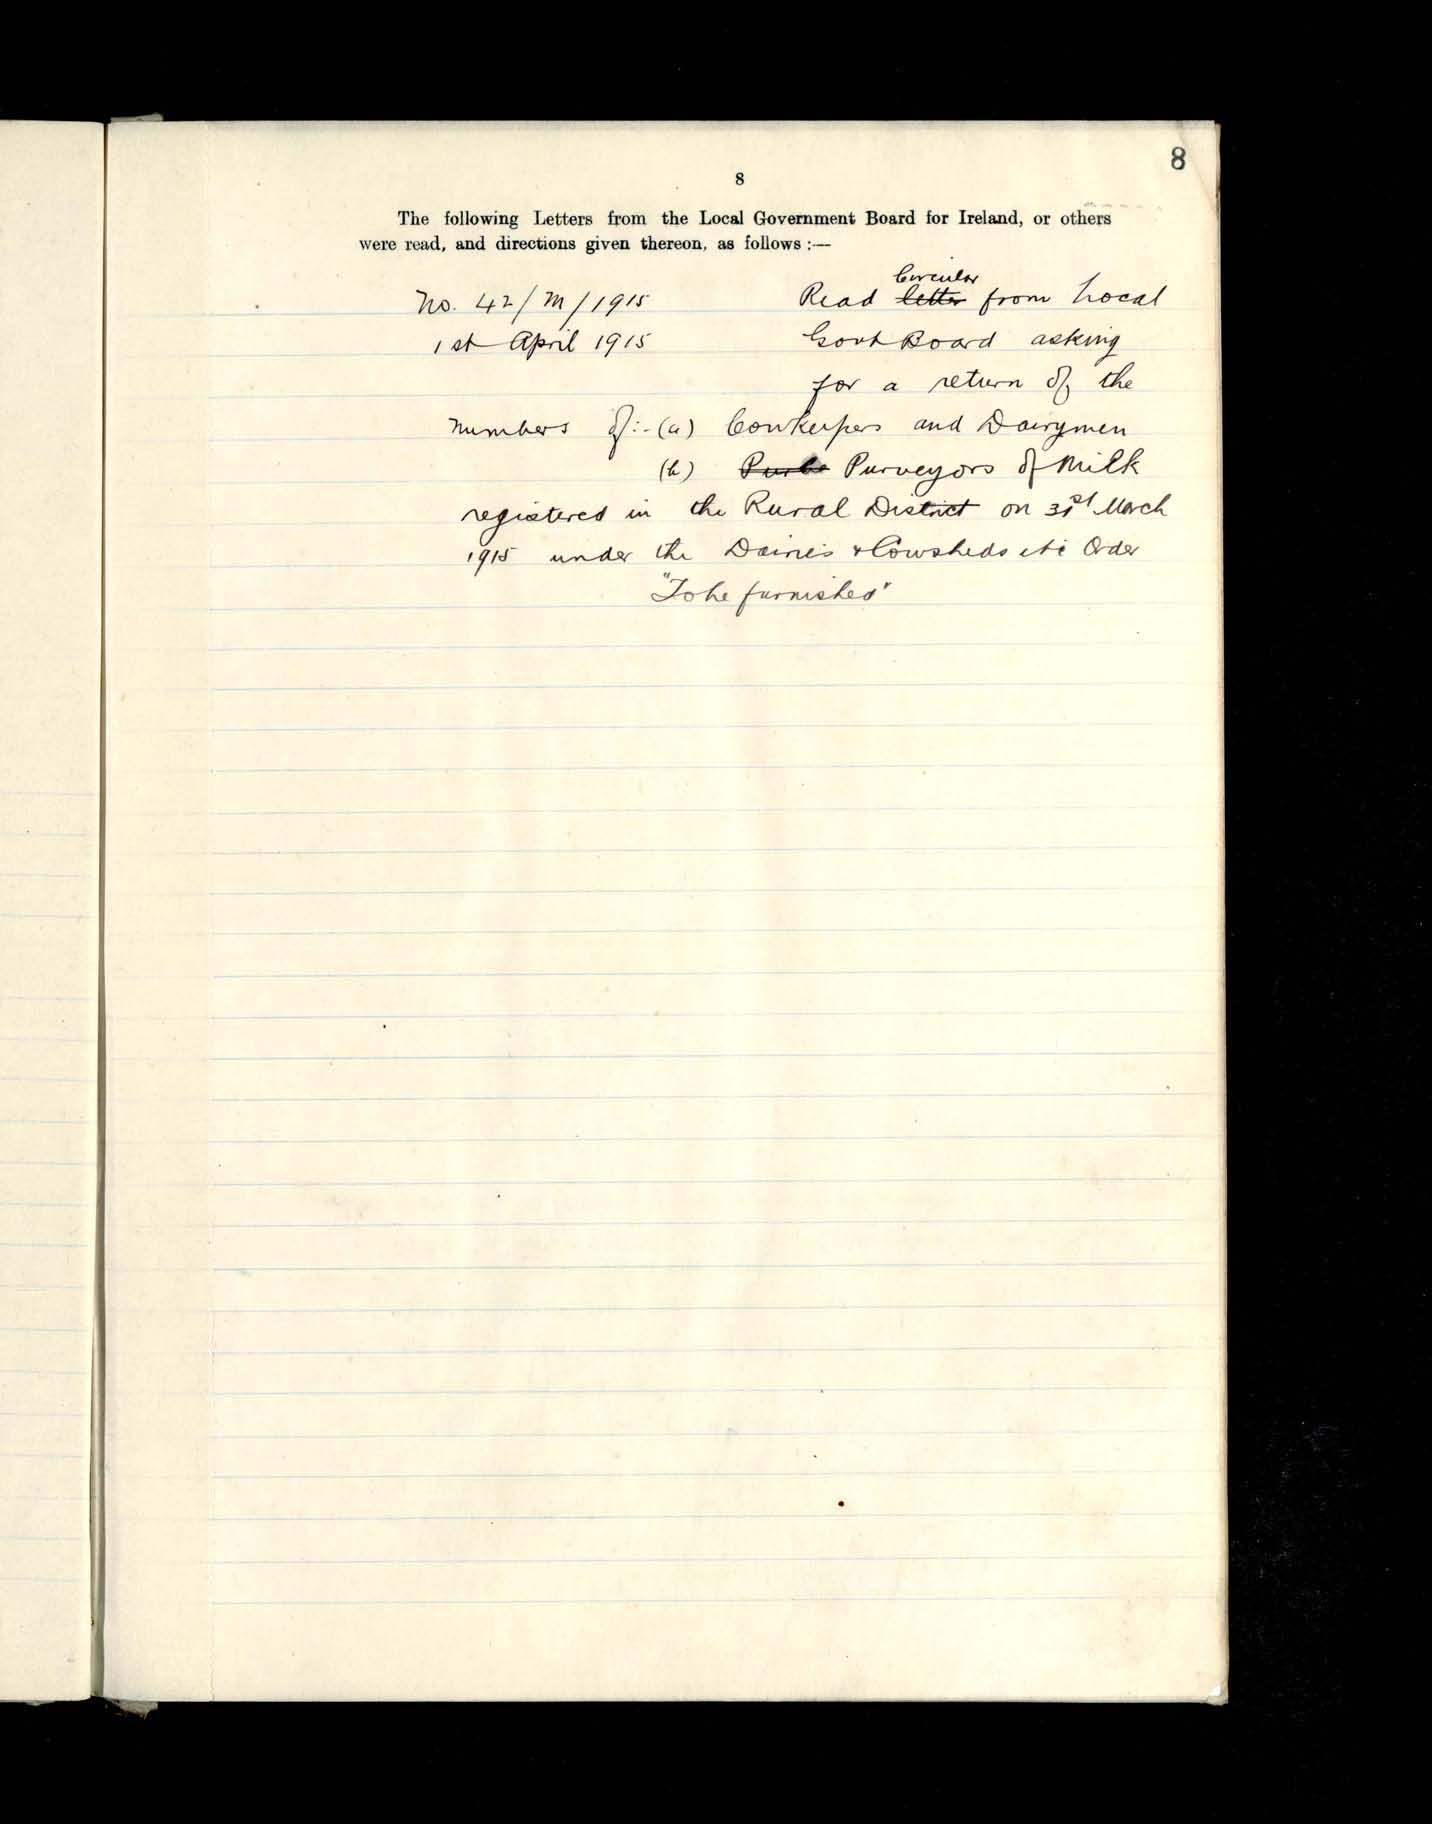 8
8
The following Letters from the Local Government Board for Ireland, or others
were read, and directions given thereon, as follows :—
Circular
No. 42/M/1915 Read letter from Local
1st April 1915 Govt Board asking
for a return of the
numbers of:- (a) Cowkeepers and Dairymen
(b) Purve Purveyors of Milk
registered in the Rural District on 31st March
1915 under the Dairies & Cowsheds etc Order
"To be furnished"